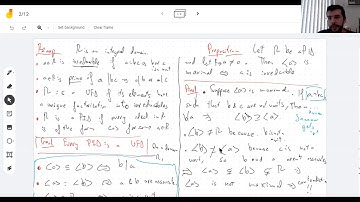 2/12
Set background
Clear frame
Recap R is an integral domain.
• a∈R is irreducible if a=bc ⇒ b or c is unit.
• a∈R is prime if a|bc ⇒ a|b or a|c
• R is a UFD if its elements have
a unique factorization into irreducibles
• R is a PID if every ideal in it
is of the form (a) for some a∈R
Goal Every PID is a UFD
⟨a⟩ ⊆ ⟨b⟩ ⟺ b|a
⟨a⟩ = ⟨b⟩ ⟺ a & b are associate
Proposition Let R be a PID
and let a ≠ 0. Then ⟨a⟩ is
maximal ⟺ a is irreducible
Proof • Suppose ⟨a⟩ is maximal. If a=bc
such that b & c are not units, then
b|a ⟹ ⟨b⟩ ⊇ ⟨a⟩
• ⟨b⟩ ≠ R because b is not a unit
• ⟨b⟩ ≠ ⟨a⟩ because c is not a
unit, so b and a aren't associates
⟹ ⟨a⟩ ⊊ ⟨b⟩ ⊊ R ⟹
⟨a⟩ is not maximal ⟹ contradiction!!